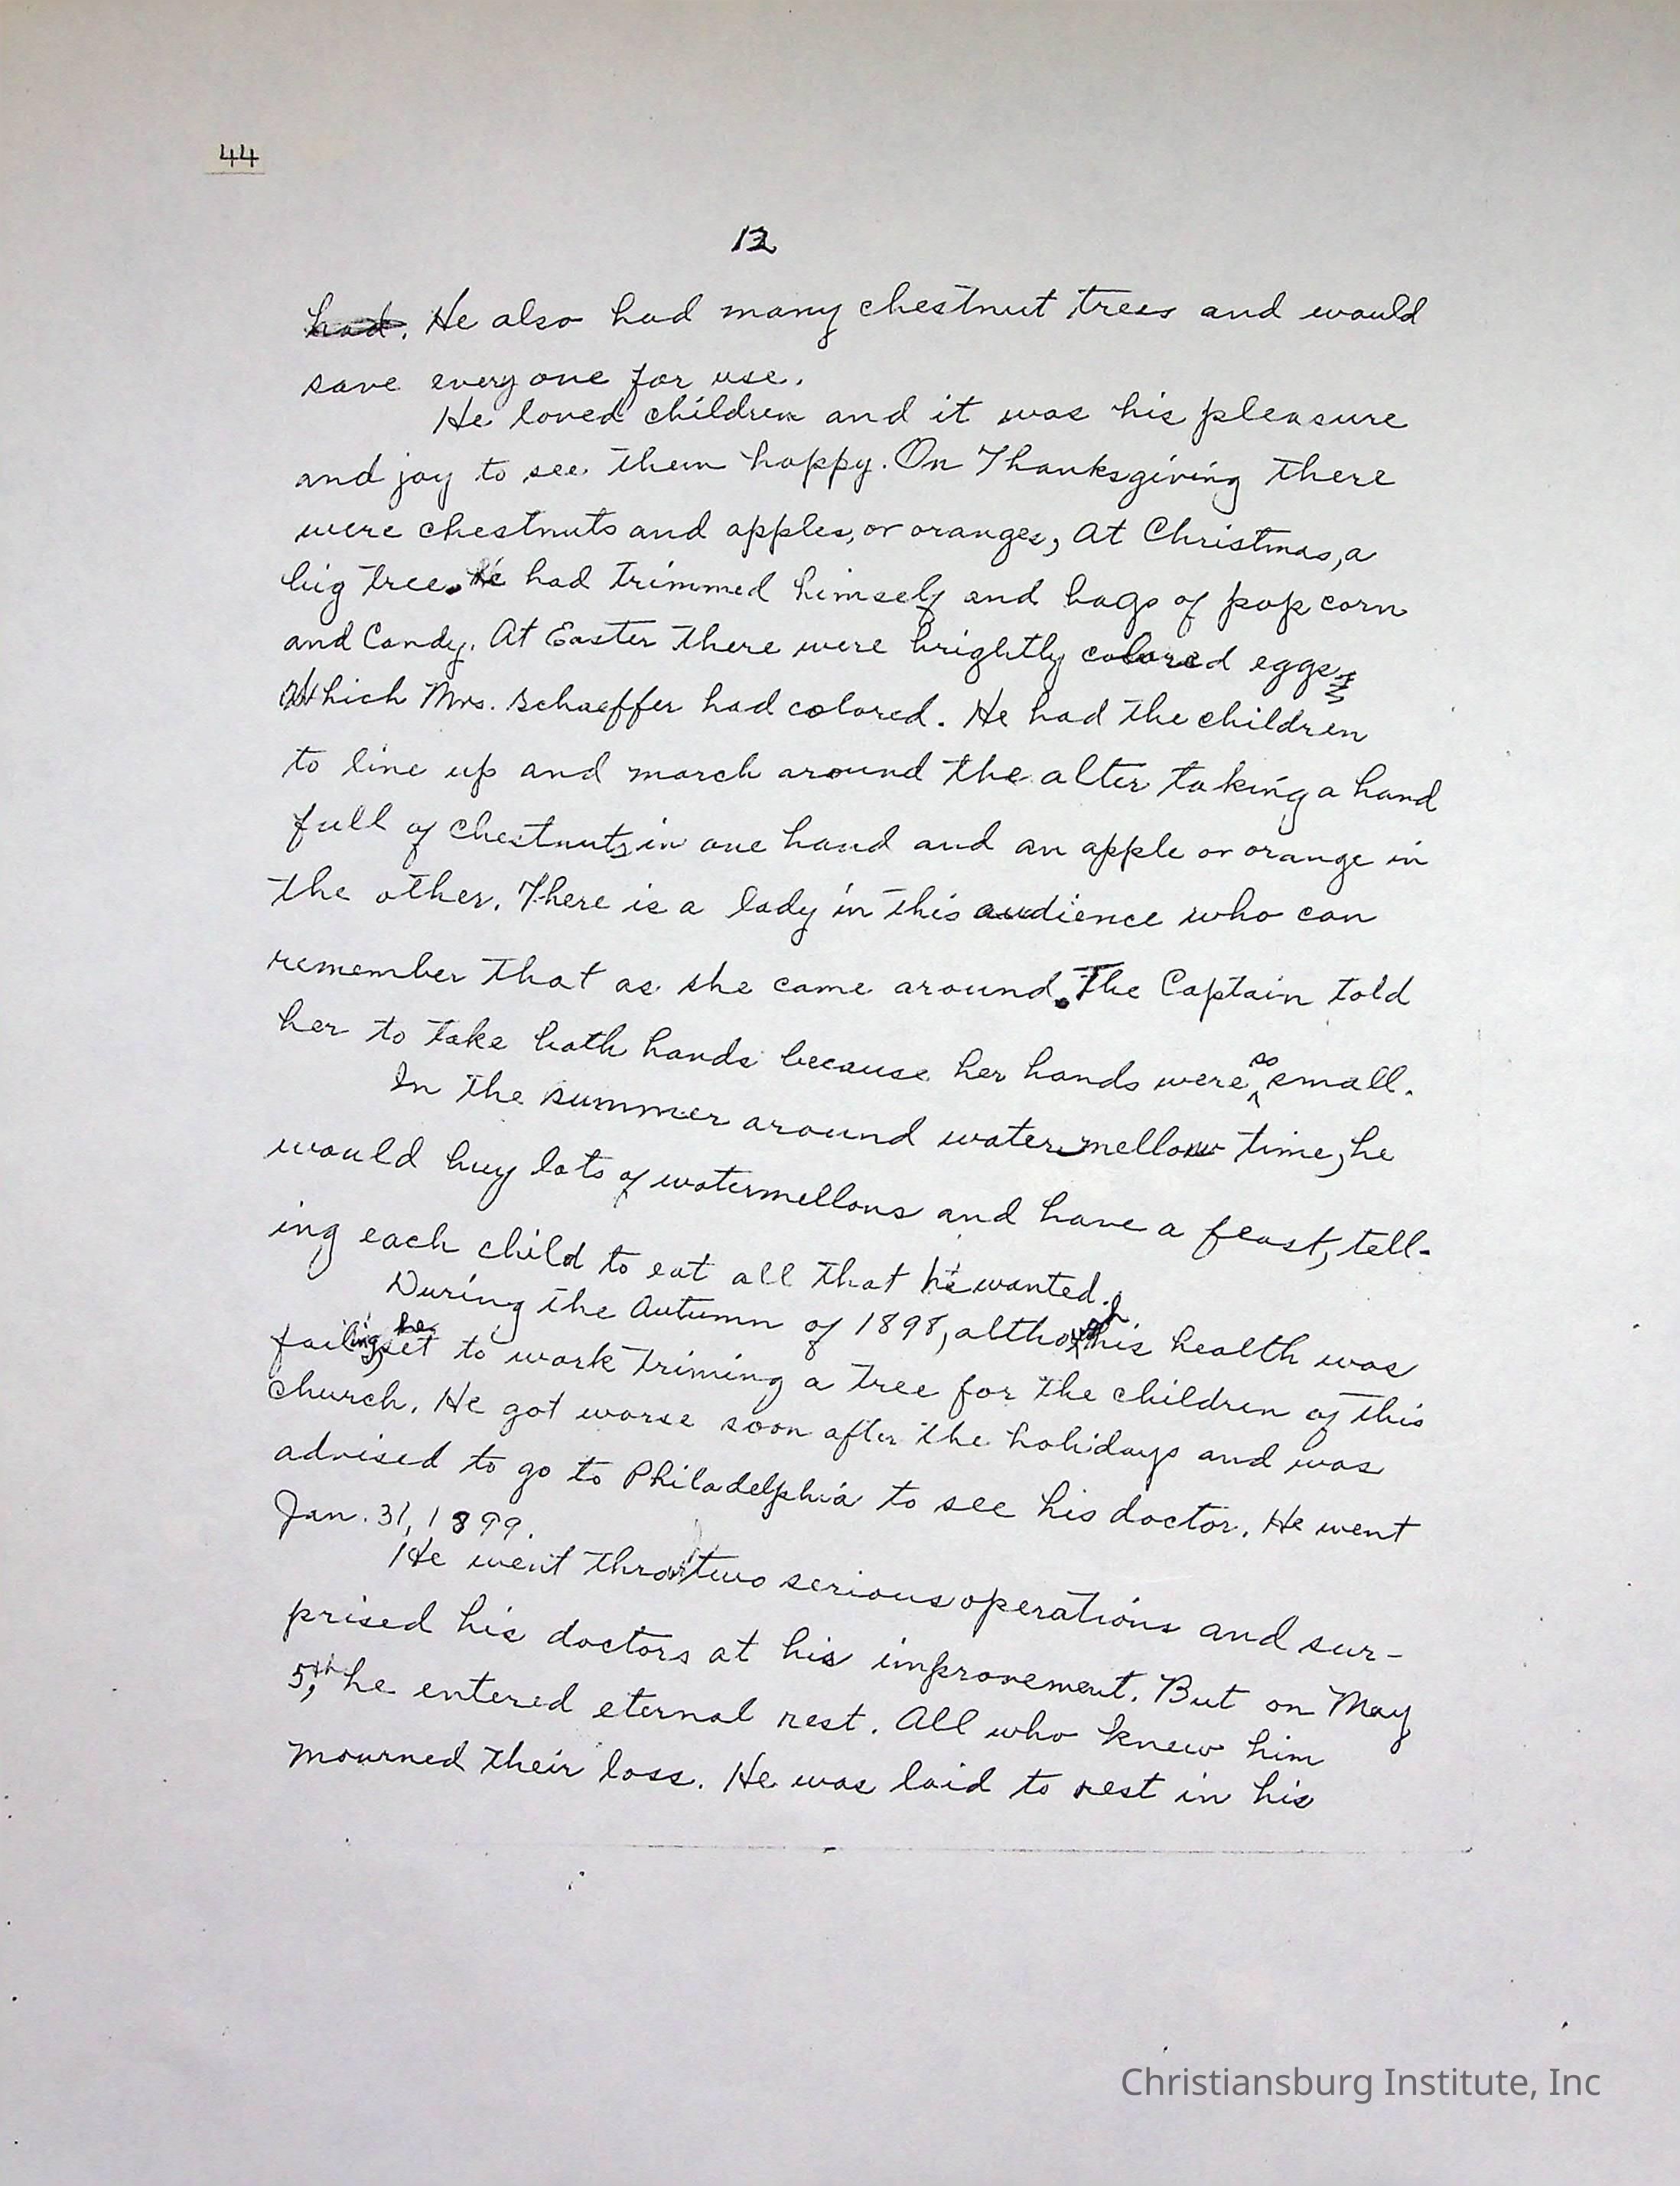 44
12
had. He also had many chestnut trees and would
save every one for use.
He loved children and it was his pleasure
and joy to see them happy. On Thanksgiving there
were chestnuts and apples, or oranges, At Christmas, a
big tree. He had trimmed himself and bags of pop corn
and Candy. At Easter there were brightly colored eggs
which Mrs. Schaeffer had colored. He had the children
to line up and march around the alter taking a hand
full of chestnuts, in one hand and an apple or orange in
the other. There is a lady in this audience who can
remember that as she came around. The Captain told
her to take both hands because her hands were so small.
In the summer around watermellow time, he
would buy lots of watermellons and have a feast, tell-
ing each child to eat all that he wanted.
During the Autumn of 1898, although his health was
failing, he set to work triming a tree for the children of this
church. He got worse soon after the holidays and was
advised to go to Philadelphia to see his doctor. He went
Jan. 31, 1899.
He went thro two serious operations and sur-
prised his doctors at his improvement. But on May
5th, he entered eternal rest. All who knew him
mourned their loss. He was laid to rest in his
Christiansburg Institute, Inc